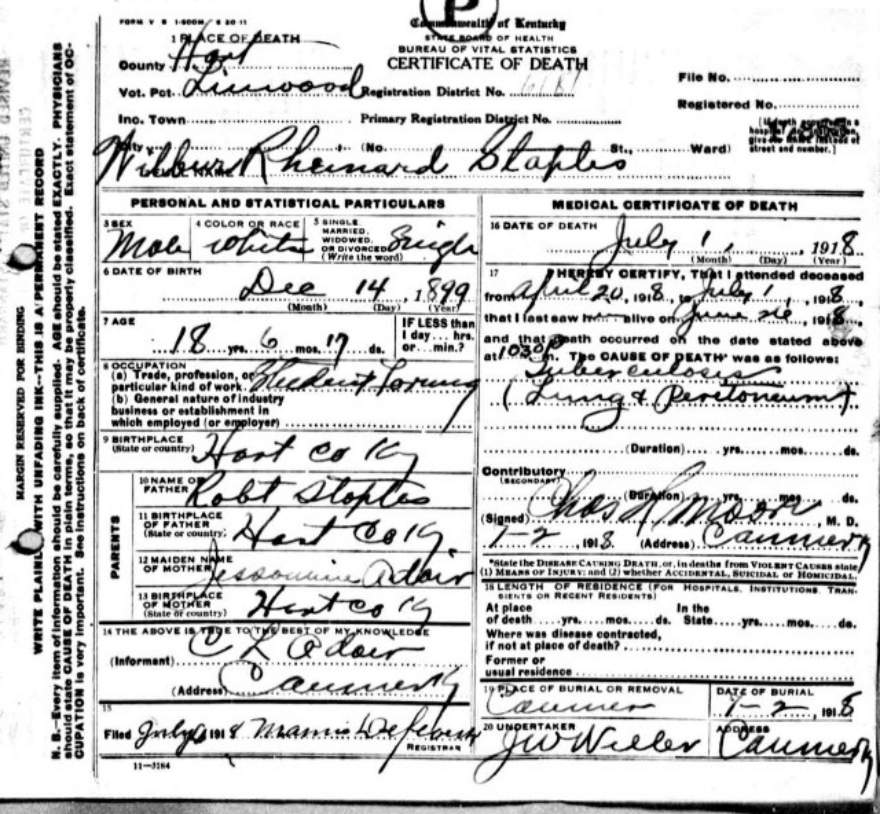 FORM V S 1-500M
P
Commonwealth of Kentucky
STATE BOARD OF HEALTH
BUREAU OF VITAL STATISTICS
CERTIFICATE OF DEATH
1 PLACE OF DEATH
County Hart
Vot. Pct. Linwood Registration District No.
File No.
Registered No.
Inc. Town Primary Registration District No.
City (No. St., Ward)
[If death occurred in a hospital or institution, give its NAME instead of street and number.]
Wilbur Rheinard Staples
PERSONAL AND STATISTICAL PARTICULARS
3 SEX Male
4 COLOR OR RACE White
5 SINGLE, MARRIED, WIDOWED, OR DIVORCED (Write the word) Single
6 DATE OF BIRTH
Dec 14, 1899
(Month) (Day) (Year)
7 AGE
18 yrs. 6 mos. 17 ds.
IF LESS than 1 day... hrs. or... min.?
8 OCCUPATION
(a) Trade, profession, or particular kind of work. Student
(b) General nature of industry business or establishment in which employed (or employer)
9 BIRTHPLACE
(State or country) Hart Co Ky
PARENTS
10 NAME OF FATHER Robt Staples
11 BIRTHPLACE OF FATHER
(State or country) Hart Co Ky
12 MAIDEN NAME OF MOTHER Jessamine Adair
13 BIRTHPLACE OF MOTHER
(State or country) Hart Co Ky
14 THE ABOVE IS TRUE TO THE BEST OF MY KNOWLEDGE
(Informant) C L Adair
(Address) Canmer Ky
15
Filed July 1918 REGISTRAR
11-3184
MEDICAL CERTIFICATE OF DEATH
16 DATE OF DEATH
July 1, 1918
(Month) (Day) (Year)
17 I HEREBY CERTIFY, That I attended deceased
from April 20, 1918, to July 1, 1918,
that I last saw him alive on June 26, 1918,
and that death occurred on the date stated above
at 1030 P m. The CAUSE OF DEATH* was as follows:
Tuberculosis
(Lung & Peritoneum)
(Duration) yrs. mos. ds.
Contributory
(SECONDARY)
(Duration) yrs. mos. ds.
(Signed) Chas H Moore, M. D.
7-2, 1918 (Address) Canmer Ky
*State the DISEASE CAUSING DEATH, or, in deaths from VIOLENT CAUSES state (1) MEANS OF INJURY; and (2) whether ACCIDENTAL, SUICIDAL or HOMICIDAL.
18 LENGTH OF RESIDENCE (FOR HOSPITALS, INSTITUTIONS, TRANSIENTS OR RECENT RESIDENTS)
At place of death yrs. mos. ds. In the State yrs. mos. ds.
Where was disease contracted,
if not at place of death?
Former or
usual residence
19 PLACE OF BURIAL OR REMOVAL
Canmer
DATE OF BURIAL
7-2, 1918
20 UNDERTAKER
ADDRESS
Canmer Ky
MARGIN RESERVED FOR BINDING
WRITE PLAINLY, WITH UNFADING INK--THIS IS A PERMANENT RECORD
N. B.--Every item of information should be carefully supplied. AGE should be stated EXACTLY. PHYSICIANS
should state CAUSE OF DEATH in plain terms, so that it may be properly classified. Exact statement of OC-
CUPATION is very important. See instructions on back of certificate.